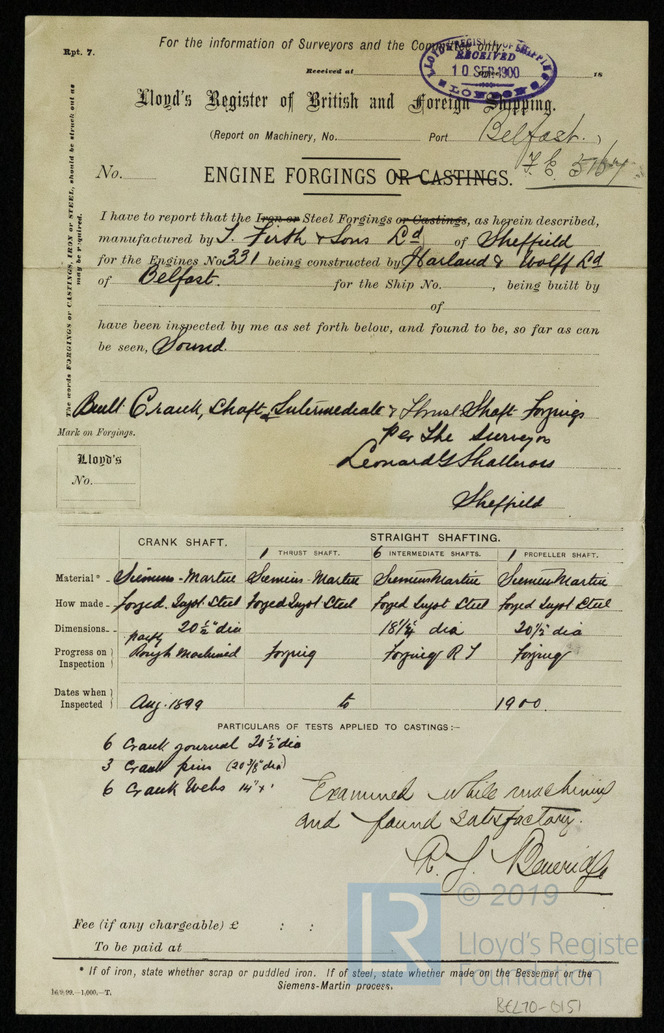 Rpt. 7.
For the information of Surveyors and the Committee only.
Received at 18
LLOYD'S REGISTER OF SHIPPING
RECEIVED
10 SEP 1900
LONDON
Lloyd's Register of British and Foreign Shipping.
(Report on Machinery, No. Port Belfast.)
No.
ENGINE FORGINGS OR CASTINGS.
The words FORGINGS or CASTINGS, IRON or STEEL, should be struck out as may be required.
I have to report that the Iron or Steel Forgings or Castings, as herein described,
manufactured by T. Firth & Sons Ld of Sheffield
for the Engines No. 331 being constructed by Harland & Wolff Ld
of Belfast. for the Ship No. , being built by
of
have been inspected by me as set forth below, and found to be, so far as can
be seen, Sound.
Built Crank, Shaft, Intermediate & Thrust Shaft Forgings
per the Surveyor
Mark on Forgings.
Leonard G Shallcross
Lloyd's
No.
Sheffield
CRANK SHAFT. STRAIGHT SHAFTING.
1 THRUST SHAFT. 6 INTERMEDIATE SHAFTS. 1 PROPELLER SHAFT.
Material* Siemens-Martin Siemens-Martin Siemens Martin Siemens Martin
How made Forged Ingot Steel Forged Ingot Steel Forged Ingot Steel Forged Ingot Steel
Dimensions 20 1/2" dia 18 1/4" dia 20 1/2" dia
Progress on Inspection partly Rough Machined Forging Forging R T Forging
Dates when Inspected Aug. 1899 to 1900.
PARTICULARS OF TESTS APPLIED TO CASTINGS:—
6 Crank journal 20 1/2" dia
3 Crank pins (20 3/8" dia)
6 Crank Webs 14" x
Examined while machining
and found satisfactory.
R. J. Beveridge
Fee (if any chargeable) £ : :
To be paid at
* If of iron, state whether scrap or puddled iron. If of steel, state whether made on the Bessemer or the
Siemens-Martin process.
16.9.99.—1,000.—T.
BEL70-0151
LR
© 2019
Lloyd's Register
Foundation